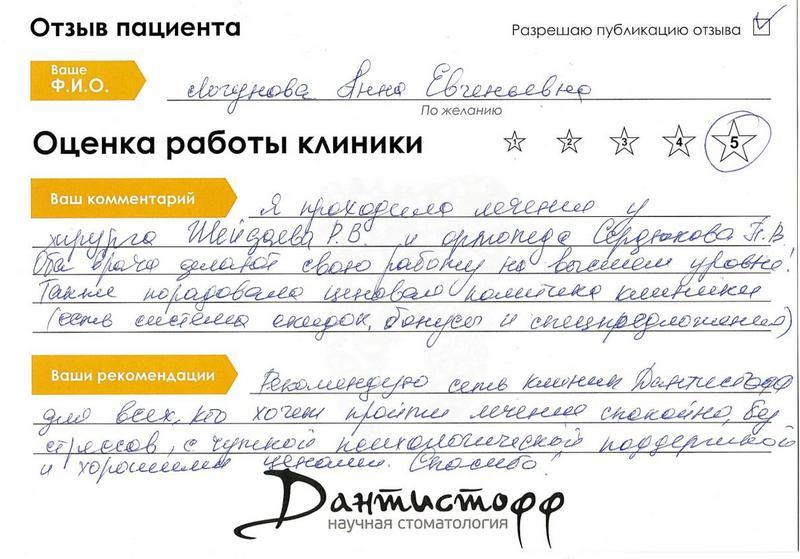 Отзыв пациента
Разрешаю публикацию отзыва
Ваше
Ф.И.О.
Логунова Анна Евгеньевна
По желанию
Оценка работы клиники
1 2 3 4 5
Ваш комментарий
Я проходила лечение у
хирурга Шейдаева Р.В. и ортопеда Сердюкова П.В.
Оба врача делают свою работу на высшем уровне!
Также порадовала ценовая политика клиники
(есть система скидок, бонусы и спецпредложения)
Ваши рекомендации
Рекомендую сеть клиник Дантистофф
для всех, кто хочет пройти лечение спокойно, без
стрессов, с чуткой психологической поддержкой
и хорошими ценами. Спасибо!
Дантистофф
научная стоматология